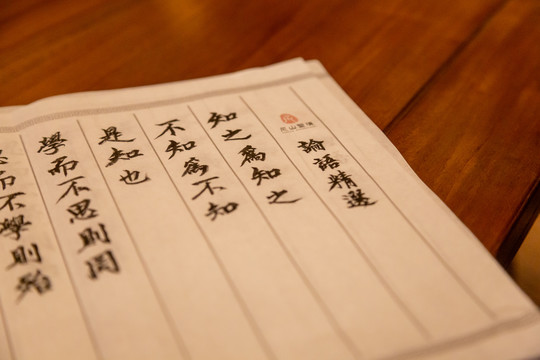 論語精選
知之為知之
不知為不知
是知也
學而不思則罔
而不學則殆